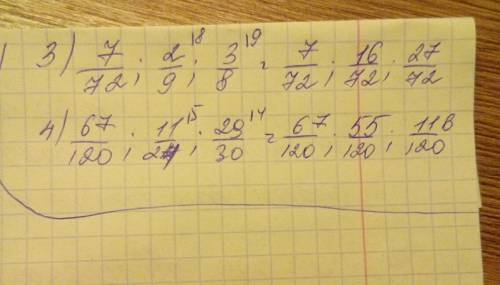 3) 7/72 ; 2/9 \8 ; 3/8 \9 = 7/72 ; 16/72 ; 27/72
4) 67/120 ; 11/24 \5 ; 29/30 \4 = 67/120 ; 55/120 ; 116/120